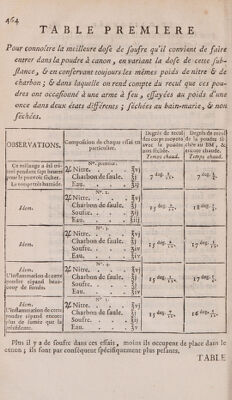 464
TABLE PREMIERE
Pour connoître la meilleure dose de soufre qu'il convient de faire
entrer dans la poudre à canon, en variant la dose de cette sub-
stance, & en conservant toujours les mêmes poids de nitre & de
charbon; & dans laquelle on rend compte du recul que ces pou-
dres ont occasionné à une arme à feu, essayées au poids d'une
once dans deux états différens; séchées au bain-marie, & non
séchées.
OBSERVATIONS.
Composition de chaque essai en
particulier.
Degrés de recul
avec la poudre
non séchée.
Temps chaud.
Degrés de recul
de la poudre sé-
chée au BM, &
encore chaude.
Temps chaud.
Ce mélange a été tri-
turé pendant sept heures
pour le pouvoir sécher.
Nitre.
Charbon de saule.
Eau.
7 deg.
Idem.
N°. 2.
Nitre.
Charbon de saule.
Soufre.
Eau.
15 deg.
18 deg.
Idem.
Nitre.
Charbon de saule.
Soufre.
Eau.
15 deg.
17 deg.
Idem.
L'inflammation de cette
poudre répand beau-
coup de fumée.
Nitre.
Charbon de saule.
Soufre.
Eau.
15 deg.
17 deg.
Idem.
L'inflammation de cette
poudre répand encore
plus de fumée que la
précédente.
Nitre.
Charbon de saule.
Soufre.
Eau.
15 deg.
16 deg.
Plus il y a de soufre dans ces essais, moins ils occupent de place dans le
canon; ils sont par conséquent spécifiquement plus pesans.
TABLE